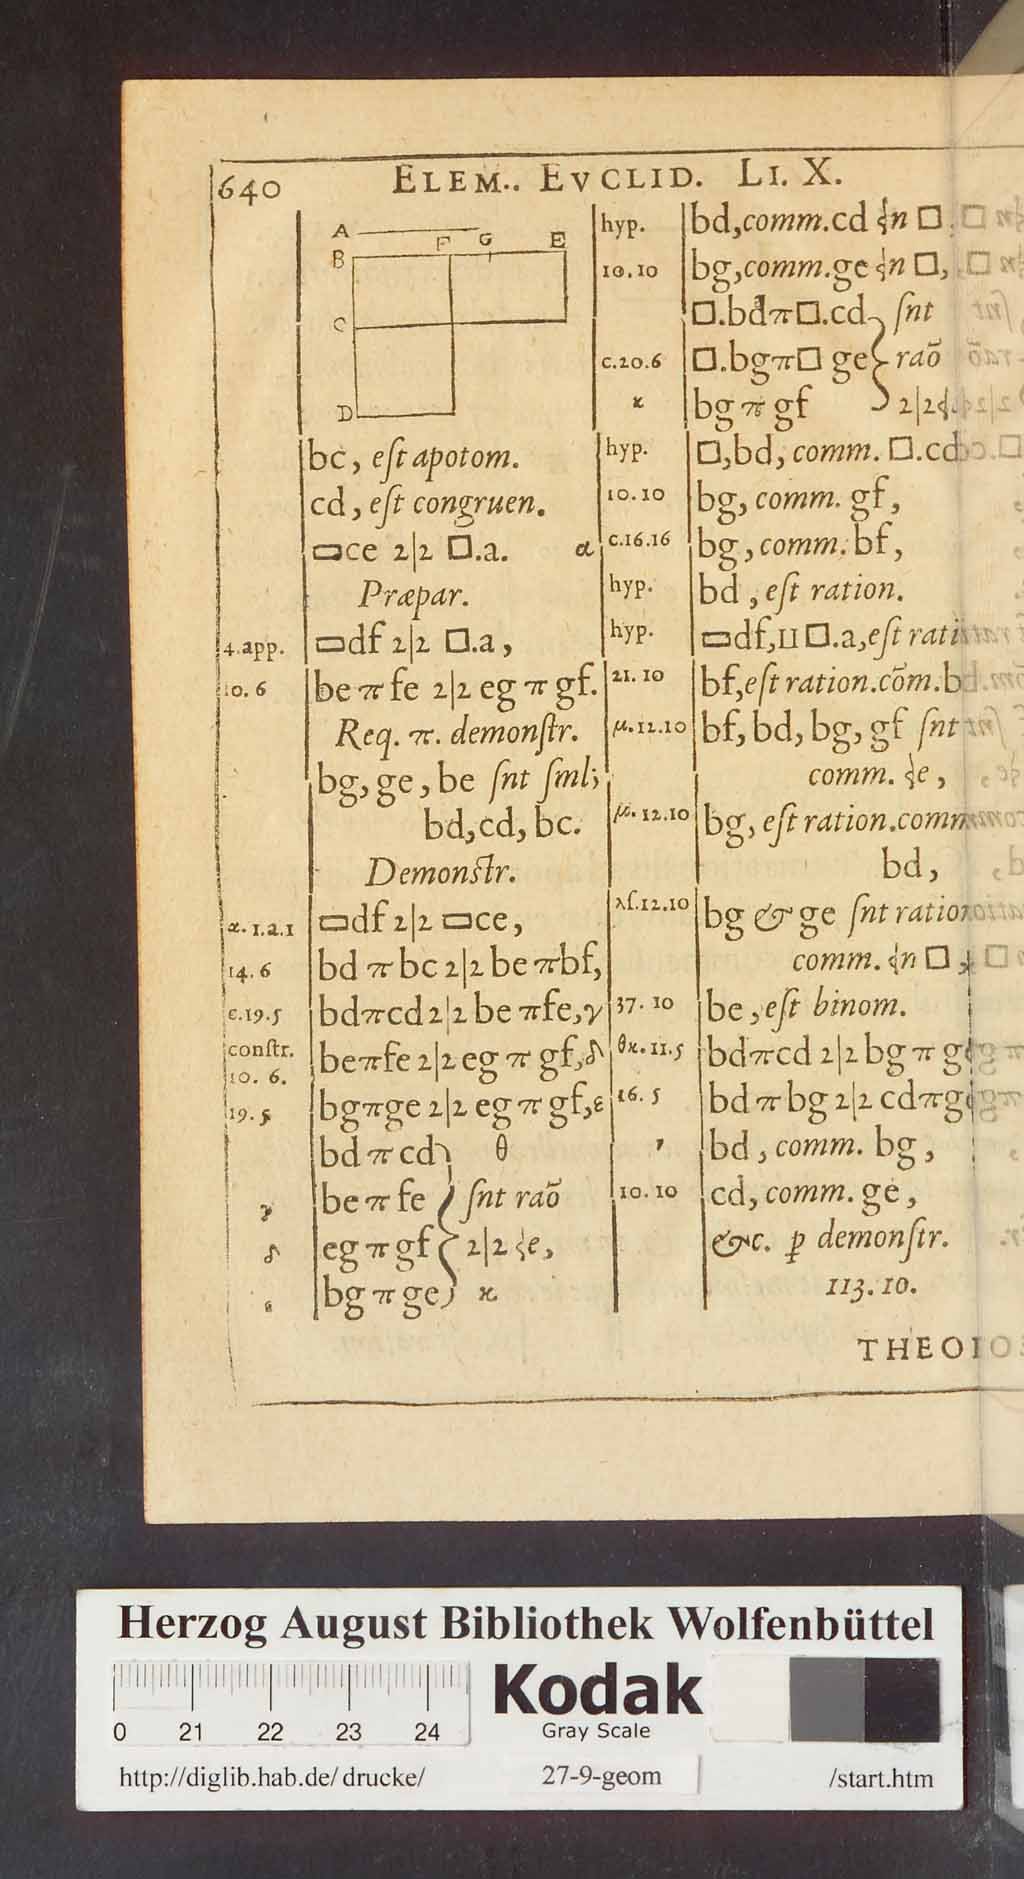 640 ELEM.. EVCLID. LI. X.
A
F G E
B
C
D
bc, eſt apotom.
cd, eſt congruen.
▭ce 2|2 □.a. α
Præpar.
4.app. ▭df 2|2 □.a,
10. 6 be π fe 2|2 eg π gf.
Req. π. demonſtr.
bg, ge, be ſnt ſml;
bd, cd, bc.
Demonſtr.
α. 1.a.1 ▭df 2|2 ▭ce,
14. 6 bd π bc 2|2 be π bf,
c.19.5 bd π cd 2|2 be π fe, γ
conſtr.
10. 6. be π fe 2|2 eg π gf, δ
19. 5 bg π ge 2|2 eg π gf, ε
bd π cd θ
γ be π fe ſnt raõ
δ eg π gf 2|2 ⸹e,
ε bg π ge κ
hyp. bd, comm. cd ⸹n □.
10.10 bg, comm. ge ⸹n □,
□.bd π □.cd ſnt
c.20.6 □.bg π □ ge raõ
κ bg π gf 2|2⸹.
hyp. □, bd, comm. □.cd
10.10 bg, comm. gf,
c.16.16 bg, comm. bf,
hyp. bd, eſt ration.
hyp. ▭df, II □.a, eſt rati
21. 10 bf, eſt ration. cõm. b
μ.12.10 bf, bd, bg, gf ſnt
comm. ⸹e,
μ. 12.10 bg, eſt ration. comm
bd,
λſ.12.10 bg & ge ſnt ratio
comm. ⸹n □
37. 10 be, eſt binom.
θκ.11.5 bd π cd 2|2 bg π g
16. 5 bd π bg 2|2 cd π g
, bd, comm. bg,
10. 10 cd, comm. ge,
&c. ꝑ demonſtr.
113. 10.
THEO
Herzog August Bibliothek Wolfenbüttel
Kodak
Gray Scale
0 21 22 23 24
http://diglib.hab.de/drucke/ 27-9-geom /start.htm